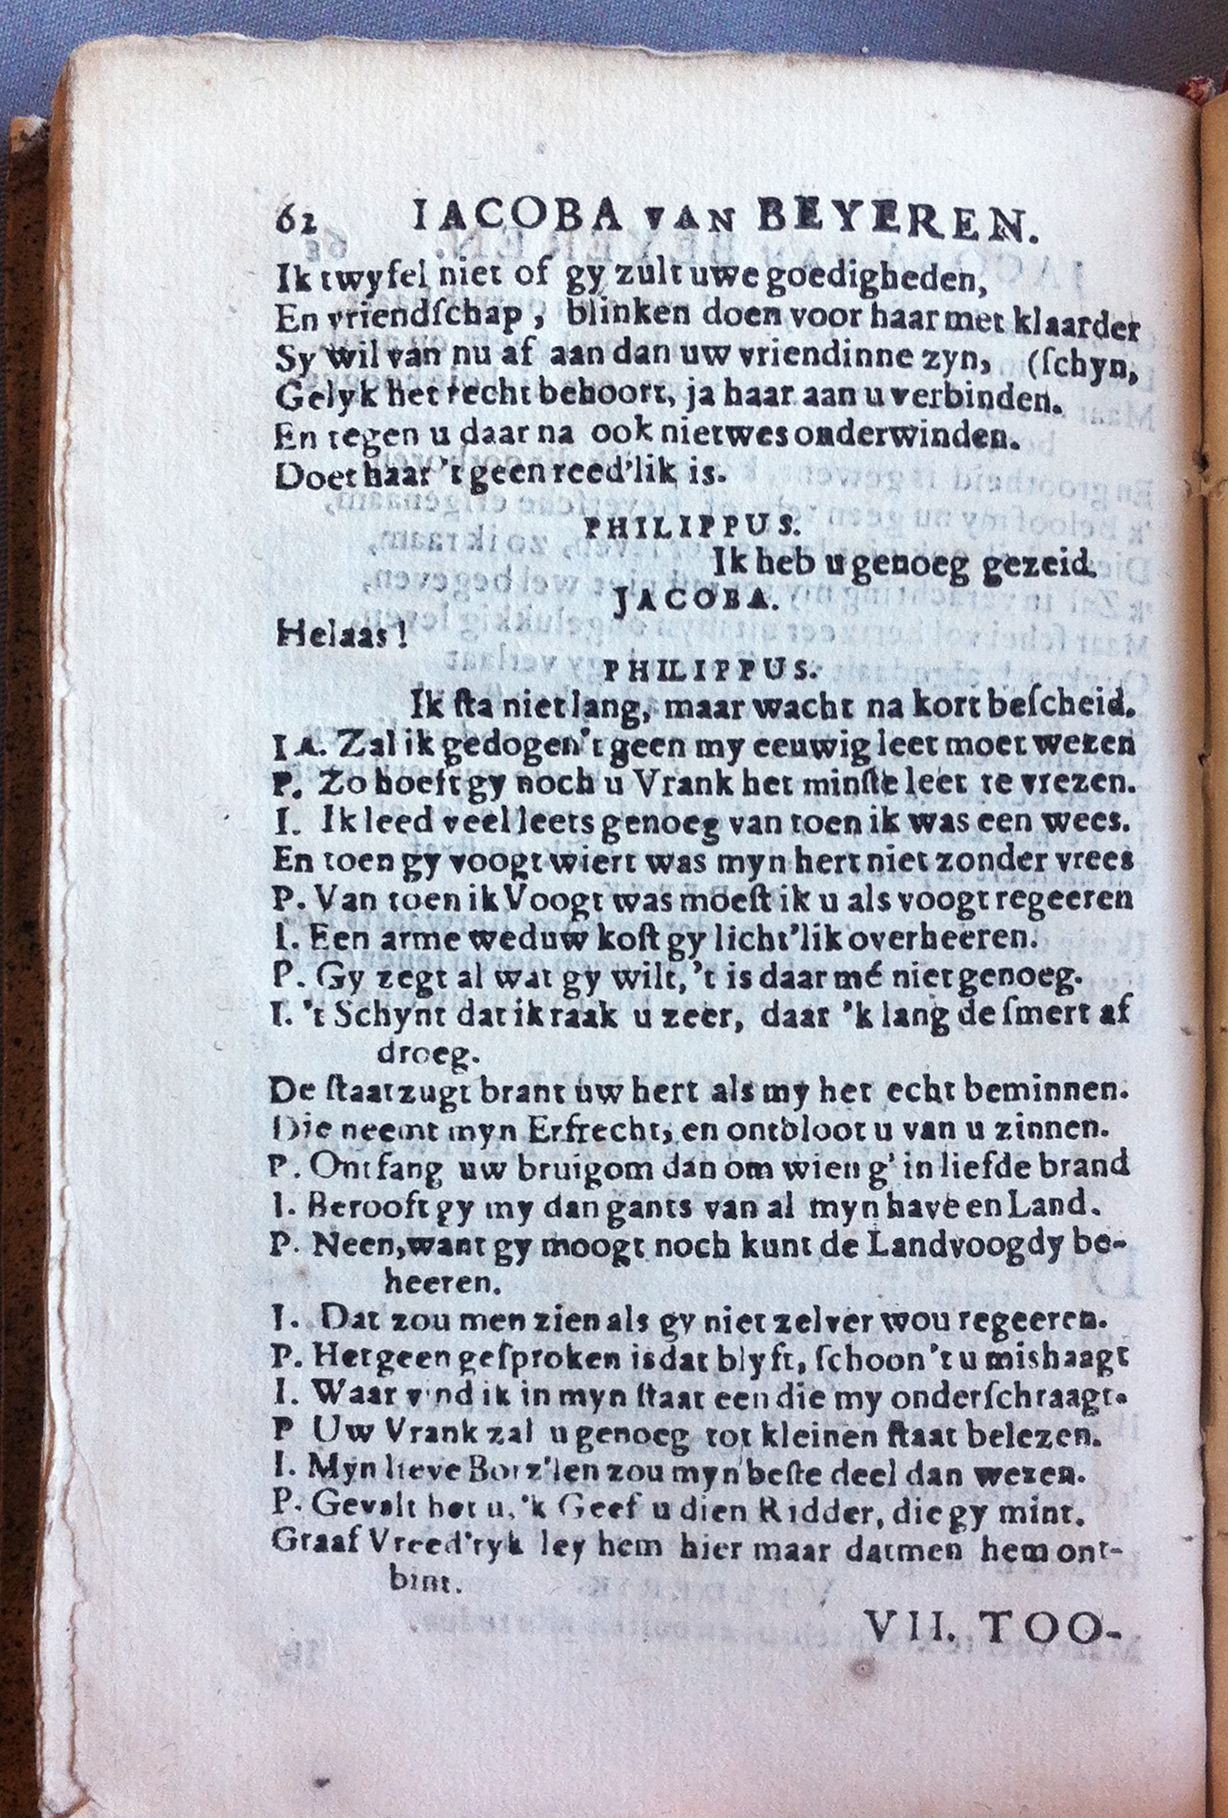 62 IACOBA VAN BEYEREN.
Ik twyfel niet of gy zult uwe goedigheden,
En vriendſchap, blinken doen voor haar met klaarder
Sy wil van nu af aan dan uw vriendinne zyn, (ſchyn,
Gelyk het recht behoort, ja haar aan u verbinden.
En tegen u daar na ook niet wes onderwinden.
Doet haar 't geen reed'lik is.
PHILIPPUS.
Ik heb u genoeg gezeid.
JACOBA.
Helaas!
PHILIPPUS.
Ik ſta niet lang, maar wacht na kort beſcheid.
IA. Zal ik gedogen 't geen my eeuwig leet moet wezen
P. Zo hoeft gy noch u Vrank het minſte leet te vrezen.
I. Ik leed veel leets genoeg van toen ik was een wees.
En toen gy voogt wiert was myn hert niet zonder vrees
P. Van toen ik Voogt was moeſt ik u als voogt regeeren
I. Een arme weduw koſt gy licht'lik overheeren.
P. Gy zegt al wat gy wilt, 't is daar mé niet genoeg.
I. 't Schynt dat ik raak u zeer, daar 'k lang de ſmert af
droeg.
De ſtaatzugt brant uw hert als my het echt beminnen.
Die neemt myn Erfrecht, en ontbloot u van u zinnen.
P. Ontfang uw bruigom dan om wien g' in liefde brand
I. Berooft gy my dan gants van al myn have en Land.
P. Neen, want gy moogt noch kunt de Landvoogdy be-
heeren.
I. Dat zou men zien als gy niet zelver wou regeeren.
P. Het geen geſproken is dat blyft, ſchoon 't u mishaagt
I. Waar vind ik in myn ſtaat een die my onderſchraagt.
P Uw Vrank zal u genoeg tot kleinen ſtaat belezen.
I. Myn lieve Borz'len zou myn beſte deel dan wezen.
P. Gevalt het u, 'k Geef u dien Ridder, die gy mint.
Graaf Vreed'ryk ley hem hier maar datmen hem ont-
bint.
VII. TOO-